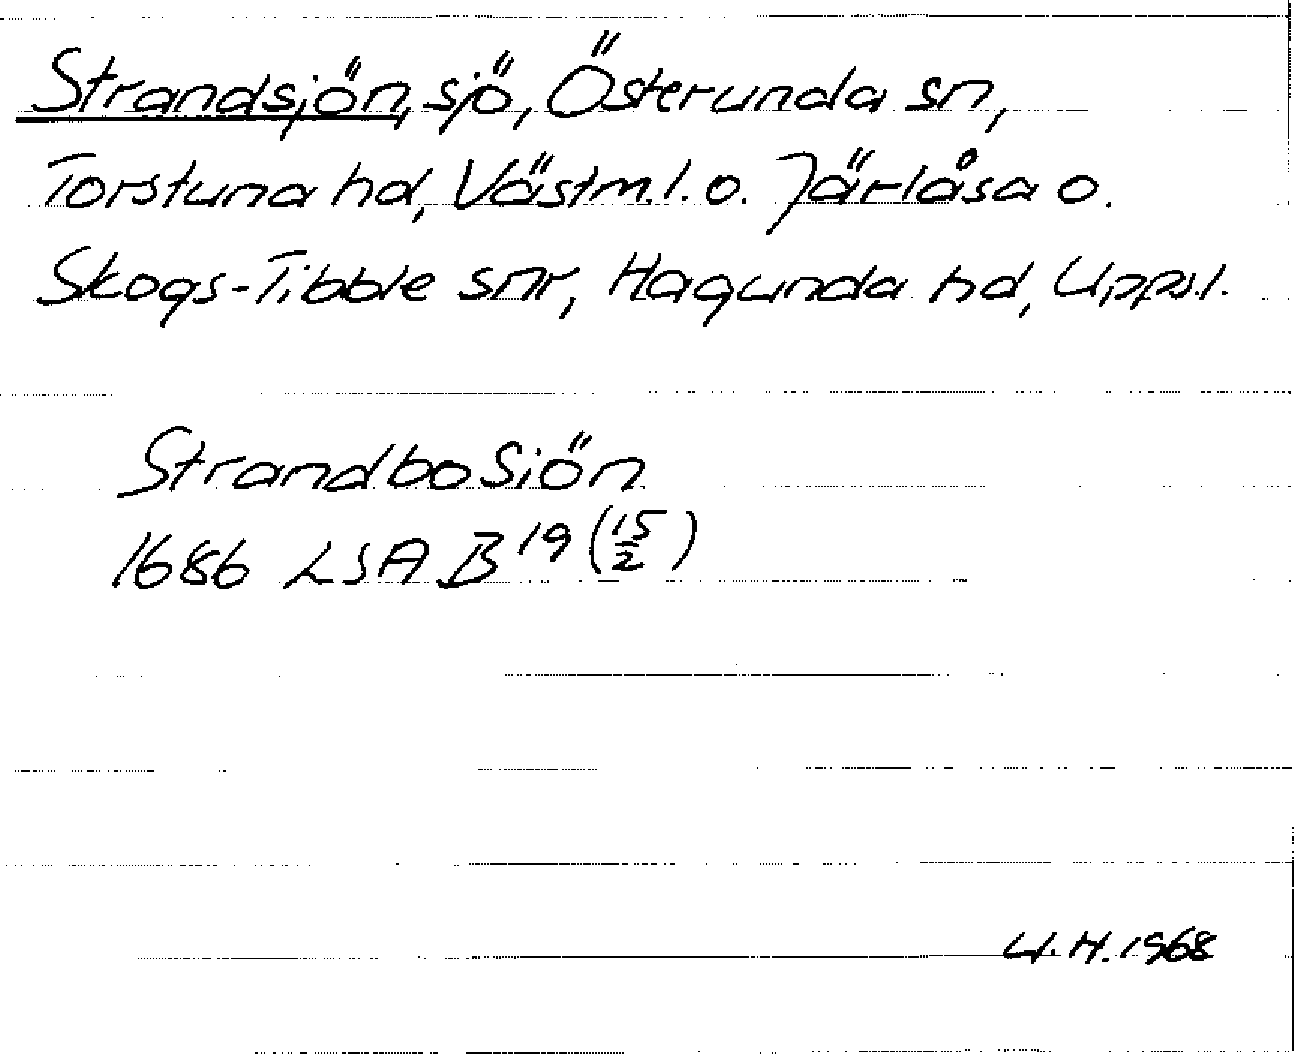 Strandsjön, sjö, Österunda sn,
Torstuna hd, Västm.l. o. Järlåsa o.
Skogs-Tibble snr, Hagunda hd, Upps.l.
StrandboSiön
1686 LSA B 19 (15/2)
H. 1968